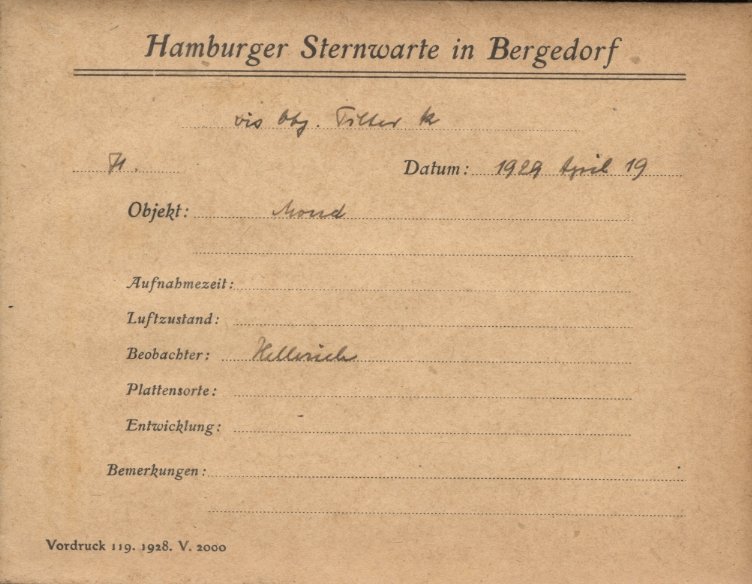 Hamburger Sternwarte in Bergedorf
vis Obj. Filter k
Datum: 1929 April 19
Objekt: Mond
Aufnahmezeit:
Luftzustand:
Beobachter: Hellerich
Plattensorte:
Entwicklung:
Bemerkungen:
Vordruck 119. 1928. V. 2000